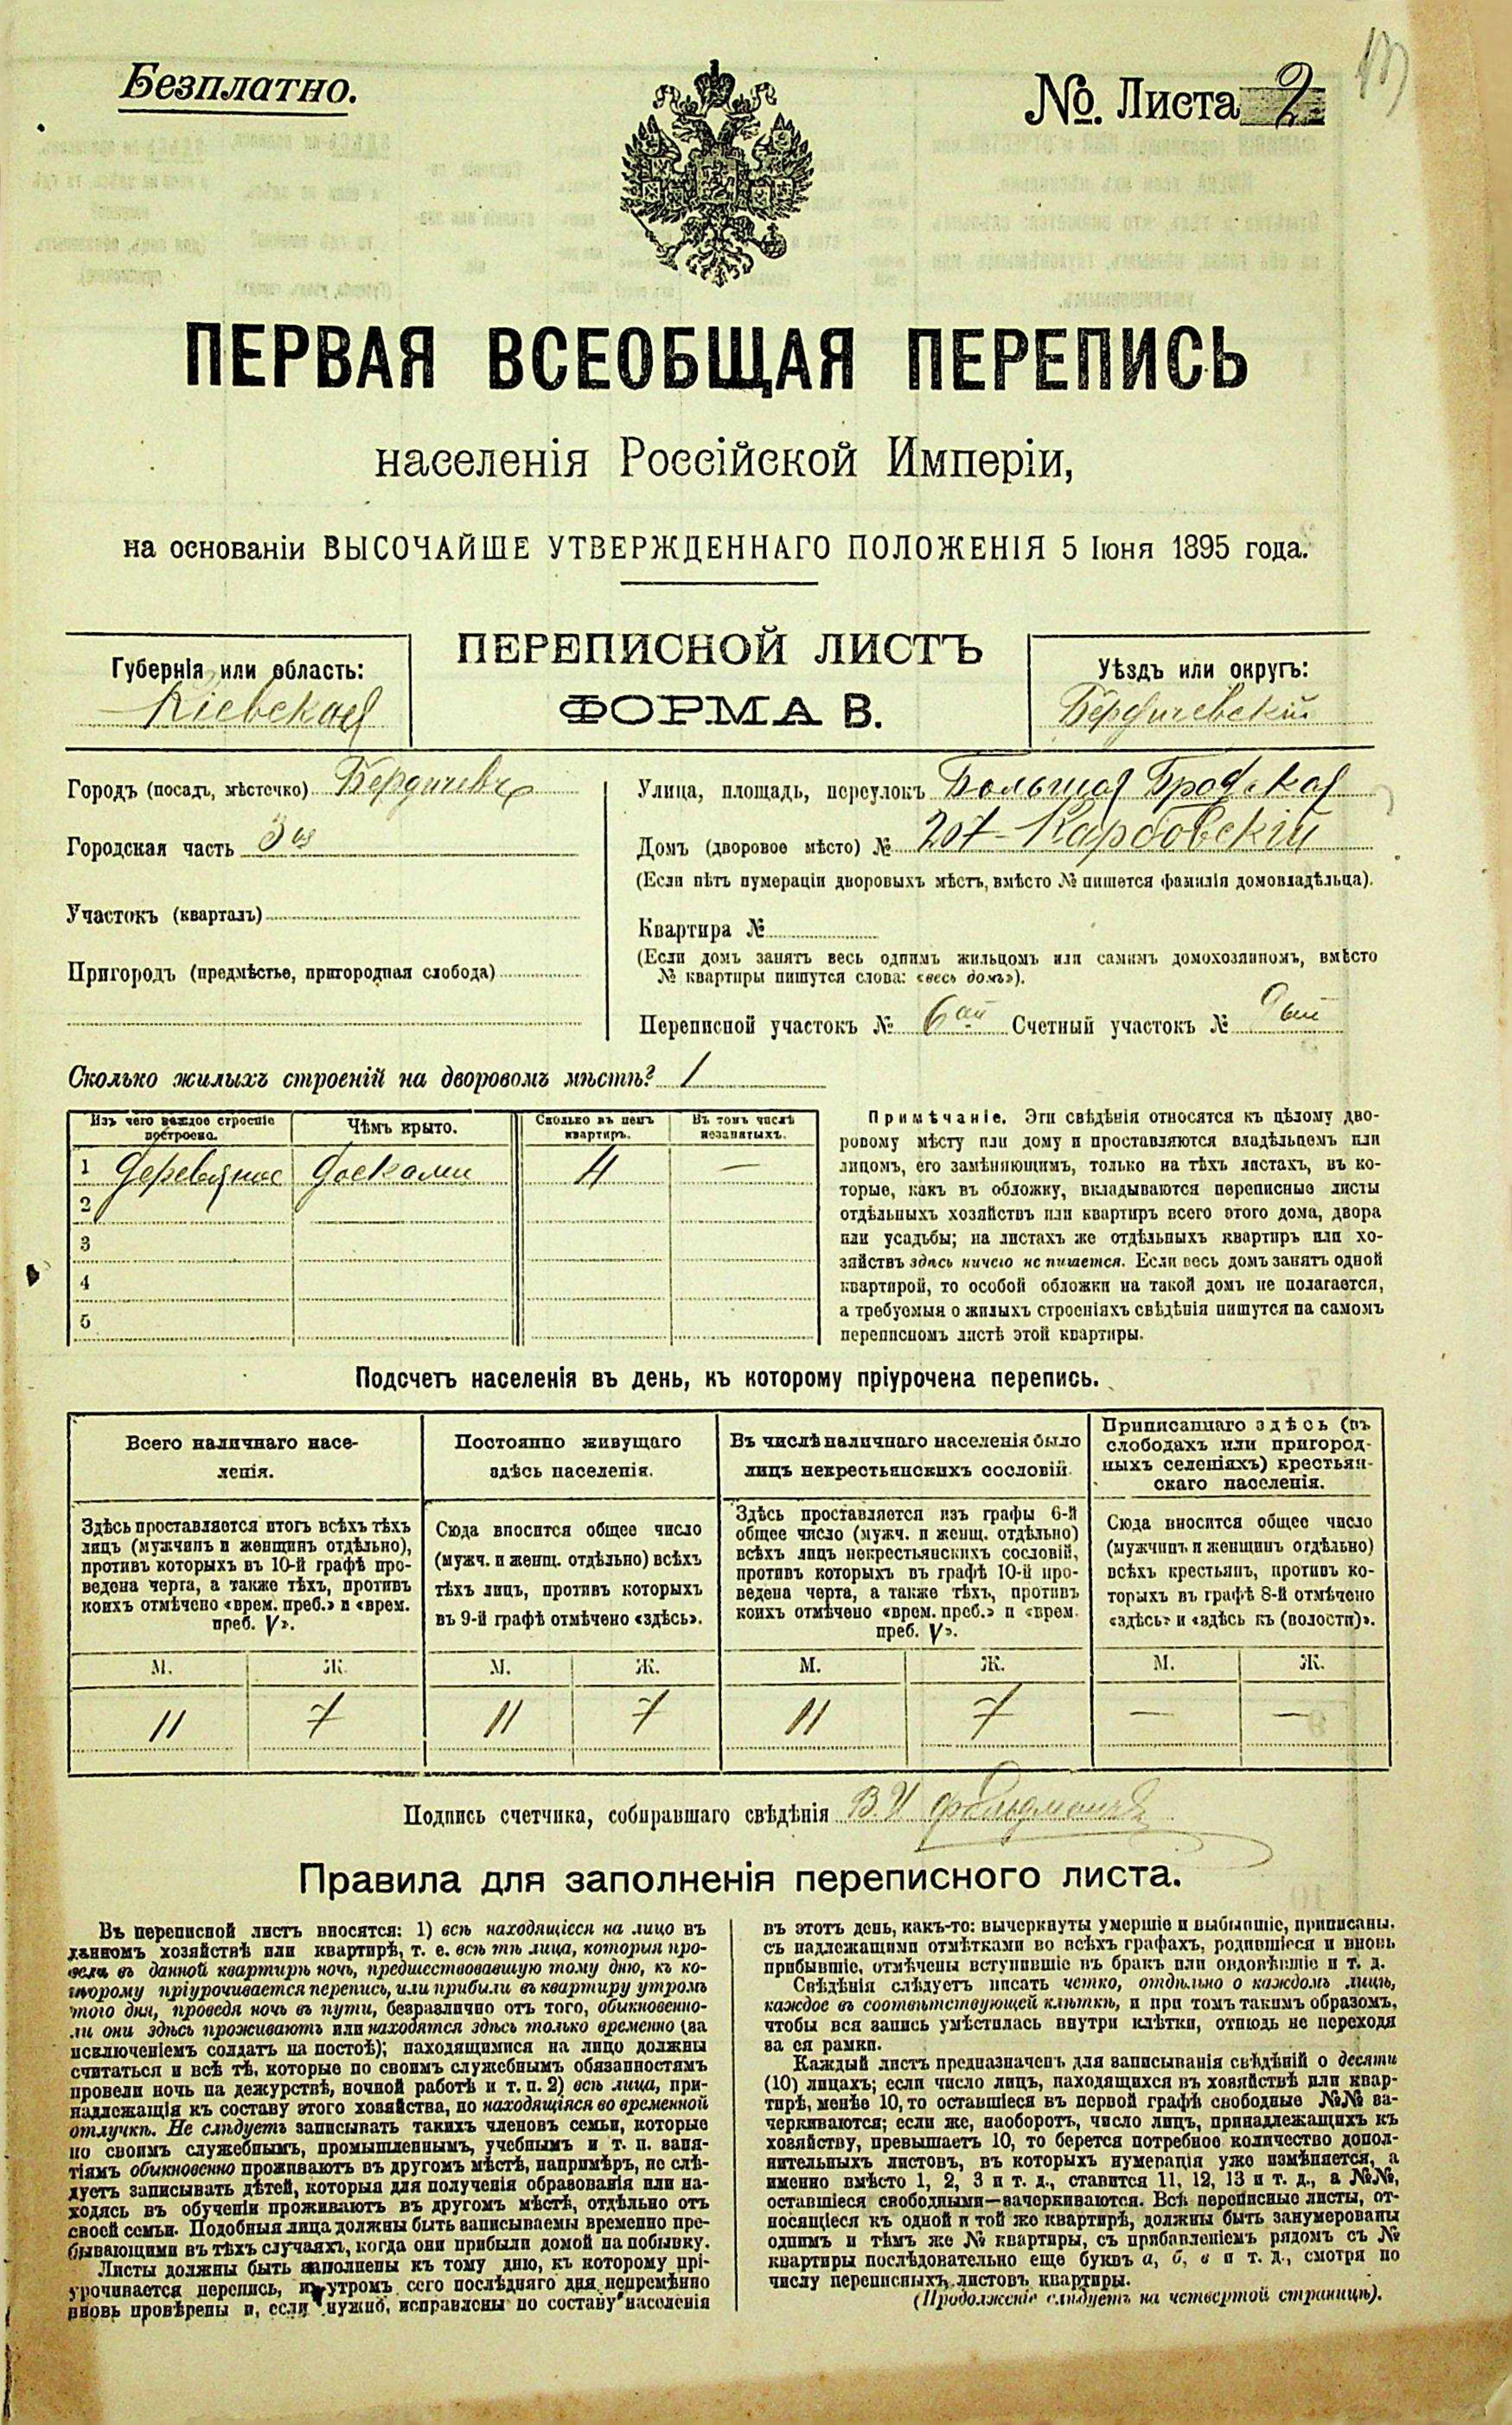 Безплатно.
№. Листа 2
ПЕРВАЯ ВСЕОБЩАЯ ПЕРЕПИСЬ
населенія Россійской Имперіи,
на основаніи ВЫСОЧАЙШЕ УТВЕРЖДЕННАГО ПОЛОЖЕНІЯ 5 Іюня 1895 года.
ПЕРЕПИСНОЙ ЛИСТЪ
ФОРМА В.
Губернія или область:
Кіевская
Уѣздъ или округъ:
Бердичевскій
Городъ (посадъ, мѣстечко) Бердичевъ
Городская часть 3ья
Участокъ (кварталъ)
Пригородъ (предмѣстье, пригородная слобода)
Улица, площадь, переулокъ Большая Бродская
Домъ (дворовое мѣсто) № 207 Карбовскій
(Если нѣтъ нумераціи дворовыхъ мѣстъ, вмѣсто № пишется фамилія домовладѣльца).
Квартира №
(Если домъ занятъ весь однимъ жильцомъ или самимъ домохозяиномъ, вмѣсто
№ квартиры пишутся слова: «весь домъ»).
Переписной участокъ № 6ой Счетный участокъ №
Сколько жилыхъ строеній на дворовомъ мѣстѣ? 1
Изъ чего каждое строеніе построено. Чѣмъ крыто. Сколько въ немъ квартиръ. Въ томъ числѣ незанятыхъ.
1 Деревянное досками 4 —
2
3
4
5
Примѣчаніе. Эти свѣдѣнія относятся къ цѣлому дво-
ровому мѣсту или дому и проставляются владѣльцемъ или
лицомъ, его замѣняющимъ, только на тѣхъ листахъ, въ ко-
торые, какъ въ обложку, вкладываются переписные листы
отдѣльныхъ хозяйствъ или квартиръ всего этого дома, двора
или усадьбы; на листахъ же отдѣльныхъ квартиръ или хо-
зяйствъ здѣсь ничего не пишется. Если весь домъ занятъ одной
квартирой, то особой обложки на такой домъ не полагается,
а требуемыя о жилыхъ строеніяхъ свѣдѣнія пишутся на самомъ
переписномъ листѣ этой квартиры.
Подсчетъ населенія въ день, къ которому пріурочена перепись.
Всего наличнаго насе-
ленія.
Здѣсь проставляется итогъ всѣхъ тѣхъ
лицъ (мужчинъ и женщинъ отдѣльно),
противъ которыхъ въ 10-й графѣ про-
ведена черта, а также тѣхъ, противъ
коихъ отмѣчено «врем. преб.» и «врем.
преб. V».
Постоянно живущаго
здѣсь населенія.
Сюда вносится общее число
(мужч. и женщ. отдѣльно) всѣхъ
тѣхъ лицъ, противъ которыхъ
въ 9-й графѣ отмѣчено «здѣсь».
Въ числѣ наличнаго населенія было
лицъ некрестьянскихъ сословій.
Здѣсь проставляется изъ графы 6-й
общее число (мужч. и женщ. отдѣльно)
всѣхъ лицъ некрестьянскихъ сословій,
противъ которыхъ въ графѣ 10-й про-
ведена черта, а также тѣхъ, противъ
коихъ отмѣчено «врем. преб.» и «врем.
преб. V».
Приписаннаго здѣсь (въ
слободахъ или пригород-
ныхъ селеніяхъ) крестьян-
скаго населенія.
Сюда вносится общее число
(мужчинъ и женщинъ отдѣльно)
всѣхъ крестьянъ, противъ ко-
торыхъ въ графѣ 8-й отмѣчено
«здѣсь» и «здѣсь къ (волости)».
М. Ж. М. Ж. М. Ж. М. Ж.
11 7 11 7 11 7 — —
Подпись счетчика, собиравшаго свѣдѣнія В. И. Фельдманъ
Правила для заполненія переписного листа.
Въ переписной листъ вносятся: 1) всѣ находящіеся на лицо въ
данномъ хозяйствѣ или квартирѣ, т. е. всѣ тѣ лица, которыя про-
вели въ данной квартирѣ ночь, предшествовавшую тому дню, къ ко-
торому пріурочивается перепись, или прибыли въ квартиру утромъ
этого дня, проведя ночь въ пути, безразлично отъ того, обыкновенно-
ли они здѣсь проживаютъ или находятся здѣсь только временно (за
исключеніемъ солдатъ на постоѣ); находящимися на лицо должны
считаться и всѣ тѣ, которые по своимъ служебнымъ обязанностямъ
провели ночь на дежурствѣ, ночной работѣ и т. п. 2) всѣ лица, при-
надлежащія къ составу этого хозяйства, но находящіяся во временной
отлучкѣ. Не слѣдуетъ записывать такихъ членовъ семьи, которые
по своимъ служебнымъ, промышленнымъ, учебнымъ и т. п. заня-
тіямъ обыкновенно проживаютъ въ другомъ мѣстѣ, напримѣръ, не слѣ-
дуетъ записывать дѣтей, которыя для полученія образованія или на-
ходясь въ обученіи проживаютъ въ другомъ мѣстѣ, отдѣльно отъ
своей семьи. Подобныя лица должны быть записываемы временно пре-
бывающими въ тѣхъ случаяхъ, когда они прибыли домой на побывку.
Листы должны быть заполнены къ тому дню, къ которому прі-
урочивается перепись, и утромъ сего послѣдняго дня непремѣнно
вновь провѣрены и, если нужно, исправлены по составу населенія
въ этотъ день, какъ-то: вычеркнуты умершіе и выбывшіе, приписаны.
съ надлежащими отмѣтками во всѣхъ графахъ, родившіеся и вновь
прибывшіе, отмѣчены вступившіе въ бракъ или овдовѣвшіе и т. д.
Свѣдѣнія слѣдуетъ писать четко, отдѣльно о каждомъ лицѣ,
каждое въ соотвѣтствующей клѣткѣ, и при томъ такимъ образомъ,
чтобы вся запись умѣстилась внутри клѣтки, отнюдь не переходя
за ея рамки.
Каждый листъ предназначенъ для записыванія свѣдѣній о десяти
(10) лицахъ; если число лицъ, находящихся въ хозяйствѣ или квар-
тирѣ, менѣе 10, то оставшіеся въ первой графѣ свободные №№ за-
черкиваются; если же, наоборотъ, число лицъ, принадлежащихъ къ
хозяйству, превышаетъ 10, то берется потребное количество допол-
нительныхъ листовъ, въ которыхъ нумерація уже измѣняется, а
именно вмѣсто 1, 2, 3 и т. д., ставится 11, 12, 13 и т. д., а №№,
оставшіеся свободными—зачеркиваются. Всѣ переписные листы, от-
носящіеся къ одной и той же квартирѣ, должны быть занумерованы
однимъ и тѣмъ же № квартиры, съ прибавленіемъ рядомъ съ №
квартиры послѣдовательно еще буквъ а, б, в и т. д., смотря по
числу переписныхъ листовъ квартиры.
(Продолженіе слѣдуетъ на четвертой страницѣ).